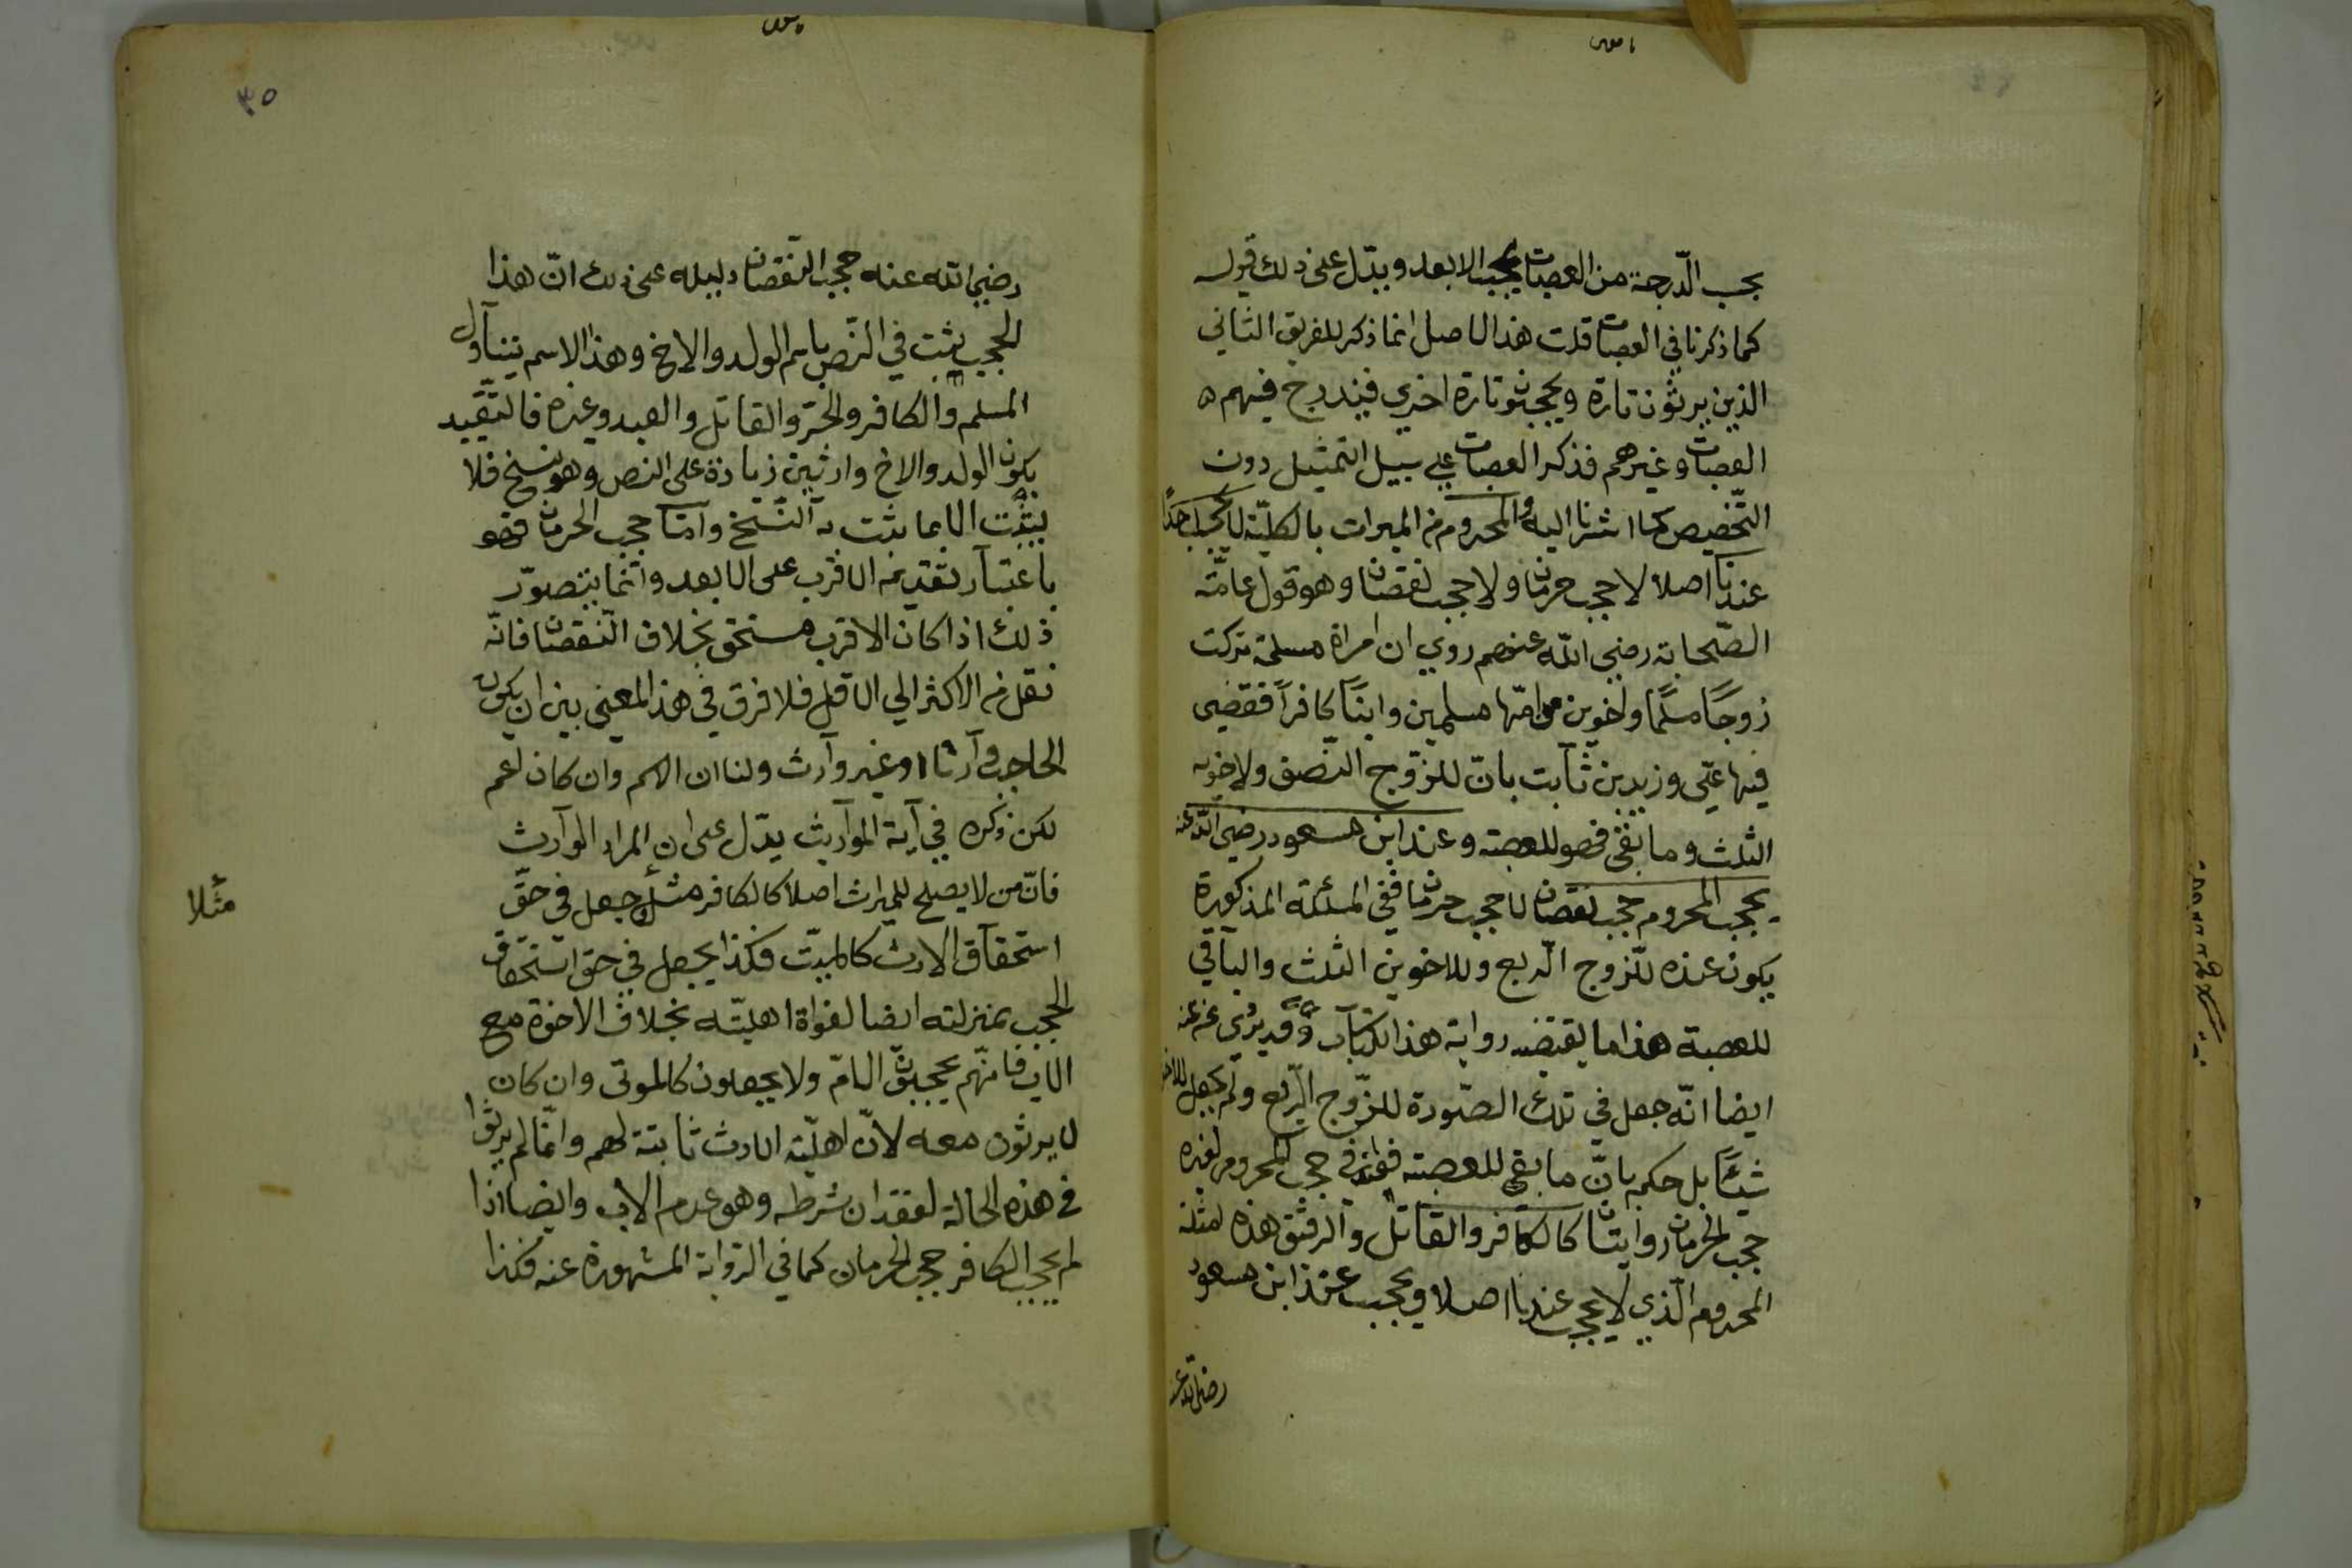 بحسب الدّرجة من العصبات يحجب الابعد ويدّل على ذلك قوله
كما ذكرنا في العصبات قلت هذا الاصل انما ذكر للفريق الثاني
الذين يرثون تارة ويحجبون تارة اخري فيندرج فيهم
العصبات وغيرهم فذكر العصبات علي سبيل التمثيل دون
التّخصيص كما اشرنا اليه والمحروم من الميراث بالكليّة لا يحجب احدًا
عندنا اصلا لا حجب حرمان ولا حجب نقصان وهو قول عامّة
الصّحابة رضي الله عنهم روي ان امراة مسلمة تركت
زوجًا مسلمًا واخوين من امّها مسلمين وابنًا كافرًا فقضي
فيها عليّ وزيد بن ثابت بانّ للزّوج النّصف ولاخوته
الثلث وما بقي فهو للعصبة وعند ابن مسعود رضي الله عنه
يحجب المحروم حجب نقصان لا حجب حرمان ففي المسئلة المذكورة
يكون عنده للزّوج الرّبع وللاخوين الثلث والباقي
للعصبة هذا ما يقتضيه رواية هذا الكتاب وقد يروى عنه
ايضا انّه جعل في تلك الصّورة للزّوج الرّبع ولم يجعل للاخ
شيئًا بل حكم بانّ ما بقي للعصبة فعنه في حجب المحروم لغيره
حجب الحرمان روايتان كالكافر والقاتل والرقيق هذه امثلة
المحروم الّذي لا يحجب عندنا اصلا ويحجب عند ابن مسعود
رضي الله عنه
٣٥
رضي الله عنه حجب النّقصان دليله على ذلك انّ هذا
الحجب يثبت في النّص باسم الولد والاخ وهذا الاسم يتناول
المسلم والكافر والحرّ والقاتل والعبد وغيره فالتقييد
بكون الولد والاخ وارثين زيادة على النص وهو نسخ فلا
يثبت الا بما يثبت به النّسخ وامّا حجب الحرمان فهو
باعتبار تقديم الاقرب على الابعد وانّما يتصوّر
ذلك اذا كان الاقرب مستحق بخلاف النّقصان فانّه
نقل من الاكثر الي الاقل فلا فرق في هذا المعني بين ان يكون
الحاجب وارثا او غير وارث ولنا ان الاسم وان كان اعم
لكن ذكره في آية المواريث يدّل على ان المراد الوارث
فانّ من لا يصلح للميراث اصلا كالكافر مثلا جعل في حقّ
مثلا
استحقاق الارث كالميّت فكذا يجعل في حق استحقاق
الحجب بمنزلته ايضا لفوات اهليّته بخلاف الاخوة مع
الاب فانّهم يحجبون الامّ ولا يجعلون كالموتى وان كان
لا يرثون معه لانّ اهليّة الارث ثابتة لهم وانّما لم يرثوا
في هذه الحالة لفقدان شرطه وهو عدم الاب وايضا اذا
لم يحجب الكافر حجب الحرمان كما في الرّواية المشهورة عنه فكذا